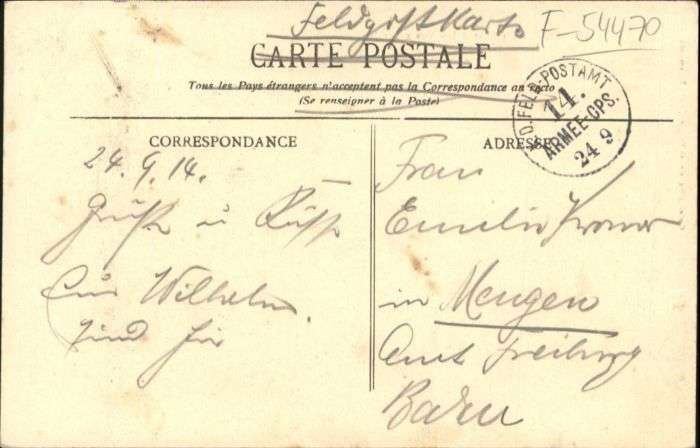 Feldpostkarte F-54470
CARTE POSTALE
Tous les Pays étrangers n'acceptent pas la Correspondance au recto
(Se renseigner à la Poste)
K.D.FELD-POSTAMT
14.
ARMEE-CPS.
24 9
CORRESPONDANCE
24.9.14.
Grüße u Küsse
Eur Wilhelm.
sind hir
ADRESSE
Frau
Emilie
in Mengen
Amt Freiburg
Baden